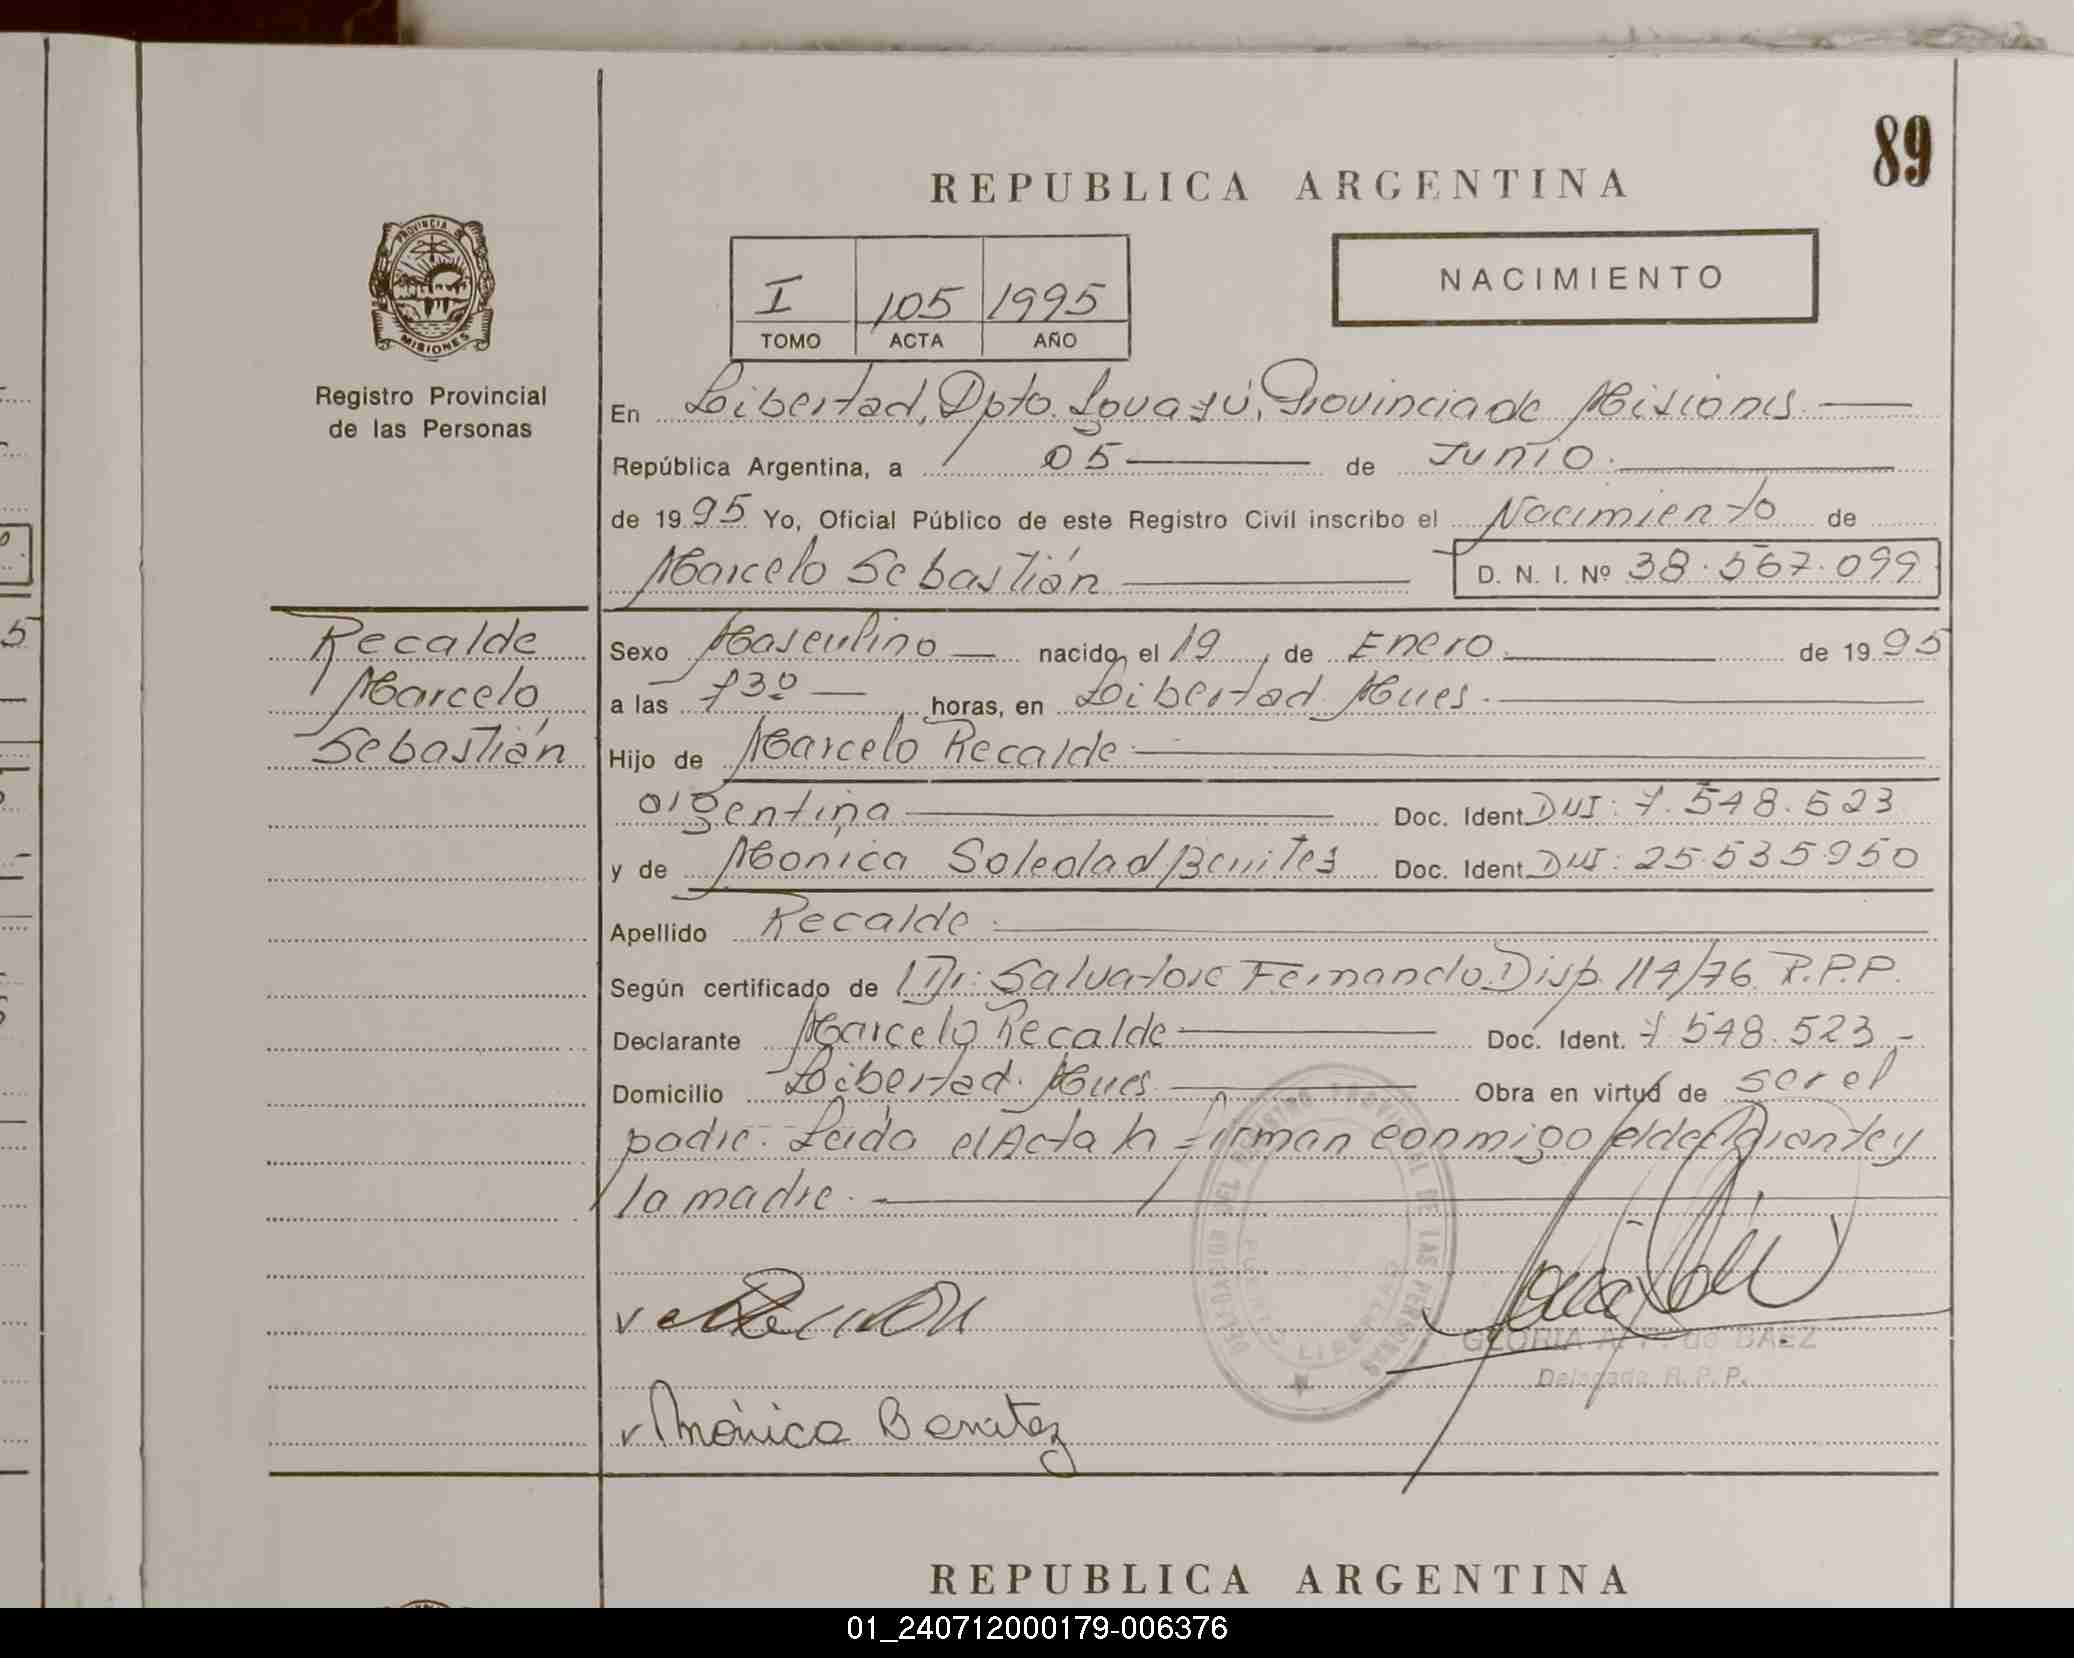 89
REPUBLICA ARGENTINA
PROVINCIA DE
MISIONES
Registro Provincial
de las Personas
I 105 1995
TOMO ACTA AÑO
NACIMIENTO
En Libertad, Dpto. Iguazú, Provincia de Misiones
República Argentina, a 05 de Junio.
de 1995 Yo, Oficial Público de este Registro Civil inscribo el Nacimiento de
Marcelo Sebastián D. N. I. Nº 38.567.099
Recalde
Marcelo
Sebastián
Sexo Masculino nacido el 19 de Enero de 1995
a las 730 horas, en Libertad Mnes.
Hijo de Marcelo Recalde
argentina Doc. Ident. DNI: 7.548.523
y de Mónica Soledad Benites Doc. Ident. DNI: 25.535950
Apellido Recalde
Según certificado de Dr. Salvatore Fernando Disp. 114/76 R.P.P.
Declarante Marcelo Recalde Doc. Ident. 7548.523
Domicilio Libertad. Mnes. Obra en virtud de ser el
padre. Leída el Acta la firman conmigo el declarante y
la madre.
DEL REGISTRO PROVINCIAL DE LAS PERSONAS
PUERTO LIBERTAD
GLORIA A. de BAEZ
Delegada R.P.P.
Mónica Benitez
REPUBLICA ARGENTINA
01_240712000179-006376